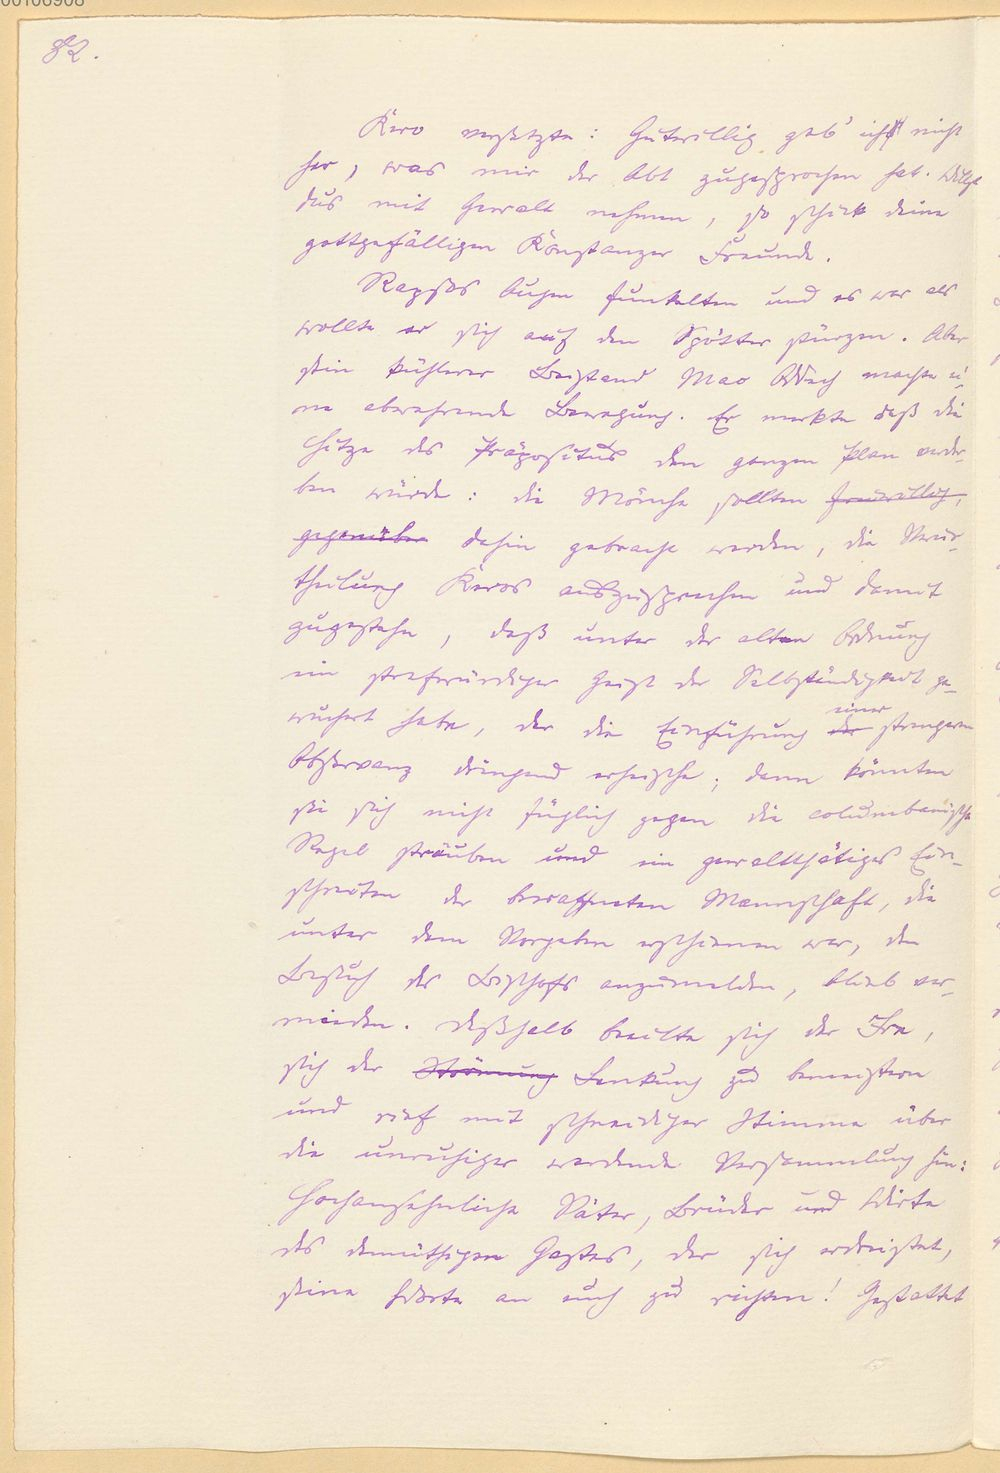 00106908
82.
Kero versetzte: Gutwillig geb' ichs nicht
her, was mir der Abt zugesprochen hat. Willst
dus mit Gewalt nehmen, so schick deine
gottgefälligen Konstanzer Freunde.
Augen funkelten und es war als
wollte er sich auf den Spötter stürzen. Aber
sein kühlerer Beistand Mac machte ei-
ne abwehrende Bewegung. Er merkte daß die
Hitze des Präpositus den ganzen Plan verder-
ben würde: die Mönche sollten freiwillig,
gegenüber dahin gebracht werden, die Verur-
theilung Keros auszusprechen und damit
zugestehn, daß unter der alten Ordnung
ein strafwürdiger Geist der Selbständigkeit ge-
wuchert habe, der die Einführung der einer strengeren
Observanz dringend erheische; dann könnten
sie sich nicht füglich gegen die columbanische
Regel sträuben und ein gewaltthätiges Ein-
schreiten der bewaffneten Mannschaft, die
unter dem Vorgeben erschienen war, den
Besuch des Bischofs anzumelden, blieb ver-
mieden. Deßhalb beeilte sich der Ire,
sich der Strömung Lenkung zu bemeistern
und rief mit schneidiger Stimme über
die unruhiger werdende Versammlung hin:
Hochansehnliche Väter, Brüder und Wirte
des demüthigen Gastes, der sich erdreistet,
seine Worte an euch zu richten! Gestattet